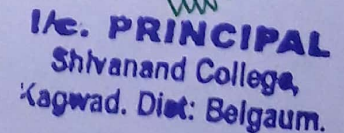 I/c. PRINCIPAL
Shivanand College,
Kagwad. Dist: Belgaum.